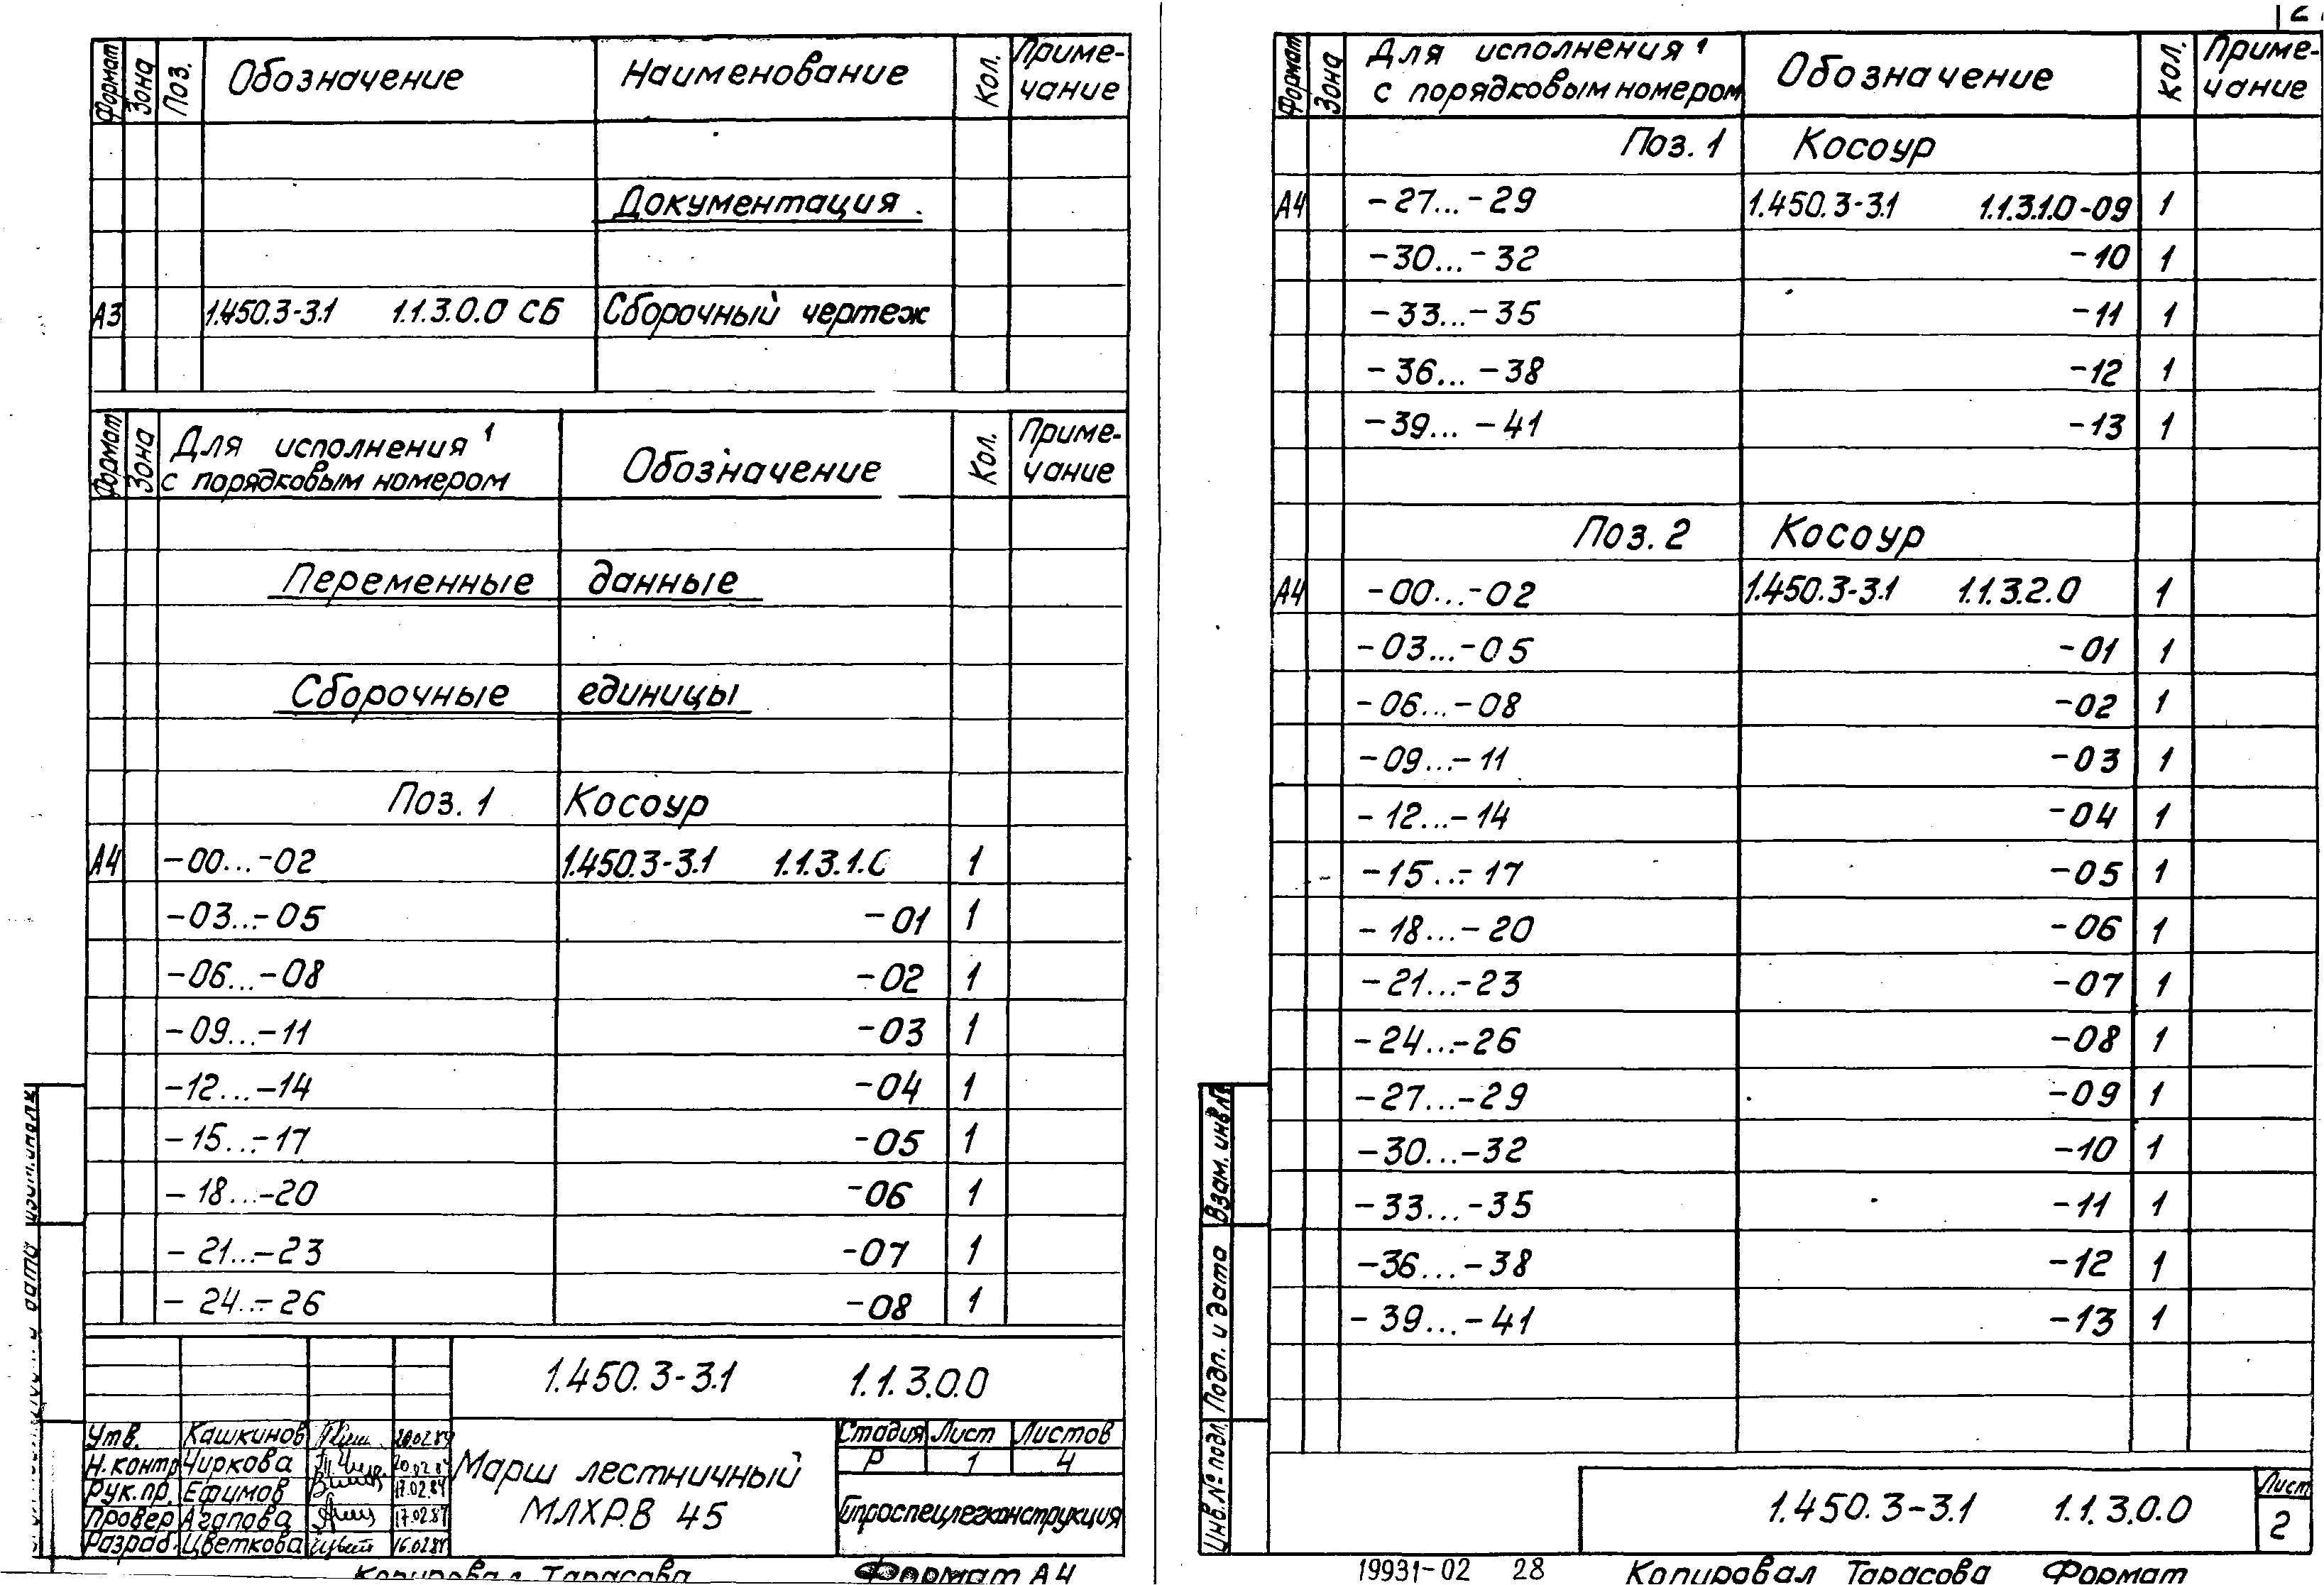 Формат Зона Поз. Обозначение Наименование Кол. Приме-
чание
Документация
А3 1.450.3-3.1 1.1.3.0.0 СБ Сборочный чертеж
Формат Зона Для исполнения¹ Обозначение Кол. Приме-
с порядковым номером чание
Переменные данные
Сборочные единицы
Поз. 1 Косоур
А4 -00...-02 1.450.3-3.1 1.1.3.1.0 1
-03...-05 -01 1
-06...-08 -02 1
-09...-11 -03 1
-12...-14 -04 1
-15...-17 -05 1
-18...-20 -06 1
-21...-23 -07 1
-24...-26 -08 1
1.450.3-3.1 1.1.3.0.0
Утв. Кашкинов 20.02.84
Н.контр Чиркова 20.02.84
Рук.пр. Ефимов 17.02.84
Провер Агапова 17.02.84
Разраб. Цветкова 16.02.84
Марш лестничный
МЛХР.В 45
Стадия Лист Листов
Р 1 4
Гипроспецлегконструкция
Копировал Тарасова Формат А4
Формат Зона Для исполнения¹ Обозначение Кол. Приме-
с порядковым номером чание
Поз. 1 Косоур
А4 -27...-29 1.450.3-3.1 1.1.3.1.0-09 1
-30...-32 -10 1
-33...-35 -11 1
-36...-38 -12 1
-39...-41 -13 1
Поз. 2 Косоур
А4 -00...-02 1.450.3-3.1 1.1.3.2.0 1
-03...-05 -01 1
-06...-08 -02 1
-09...-11 -03 1
-12...-14 -04 1
-15...-17 -05 1
-18...-20 -06 1
-21...-23 -07 1
-24...-26 -08 1
-27...-29 -09 1
-30...-32 -10 1
-33...-35 -11 1
-36...-38 -12 1
-39...-41 -13 1
Инв.№подл. Подп. и дата Взам. инв.№
1.450.3-3.1 1.1.3.0.0
Лист
2
19931-02 28 Копировал Тарасова Формат